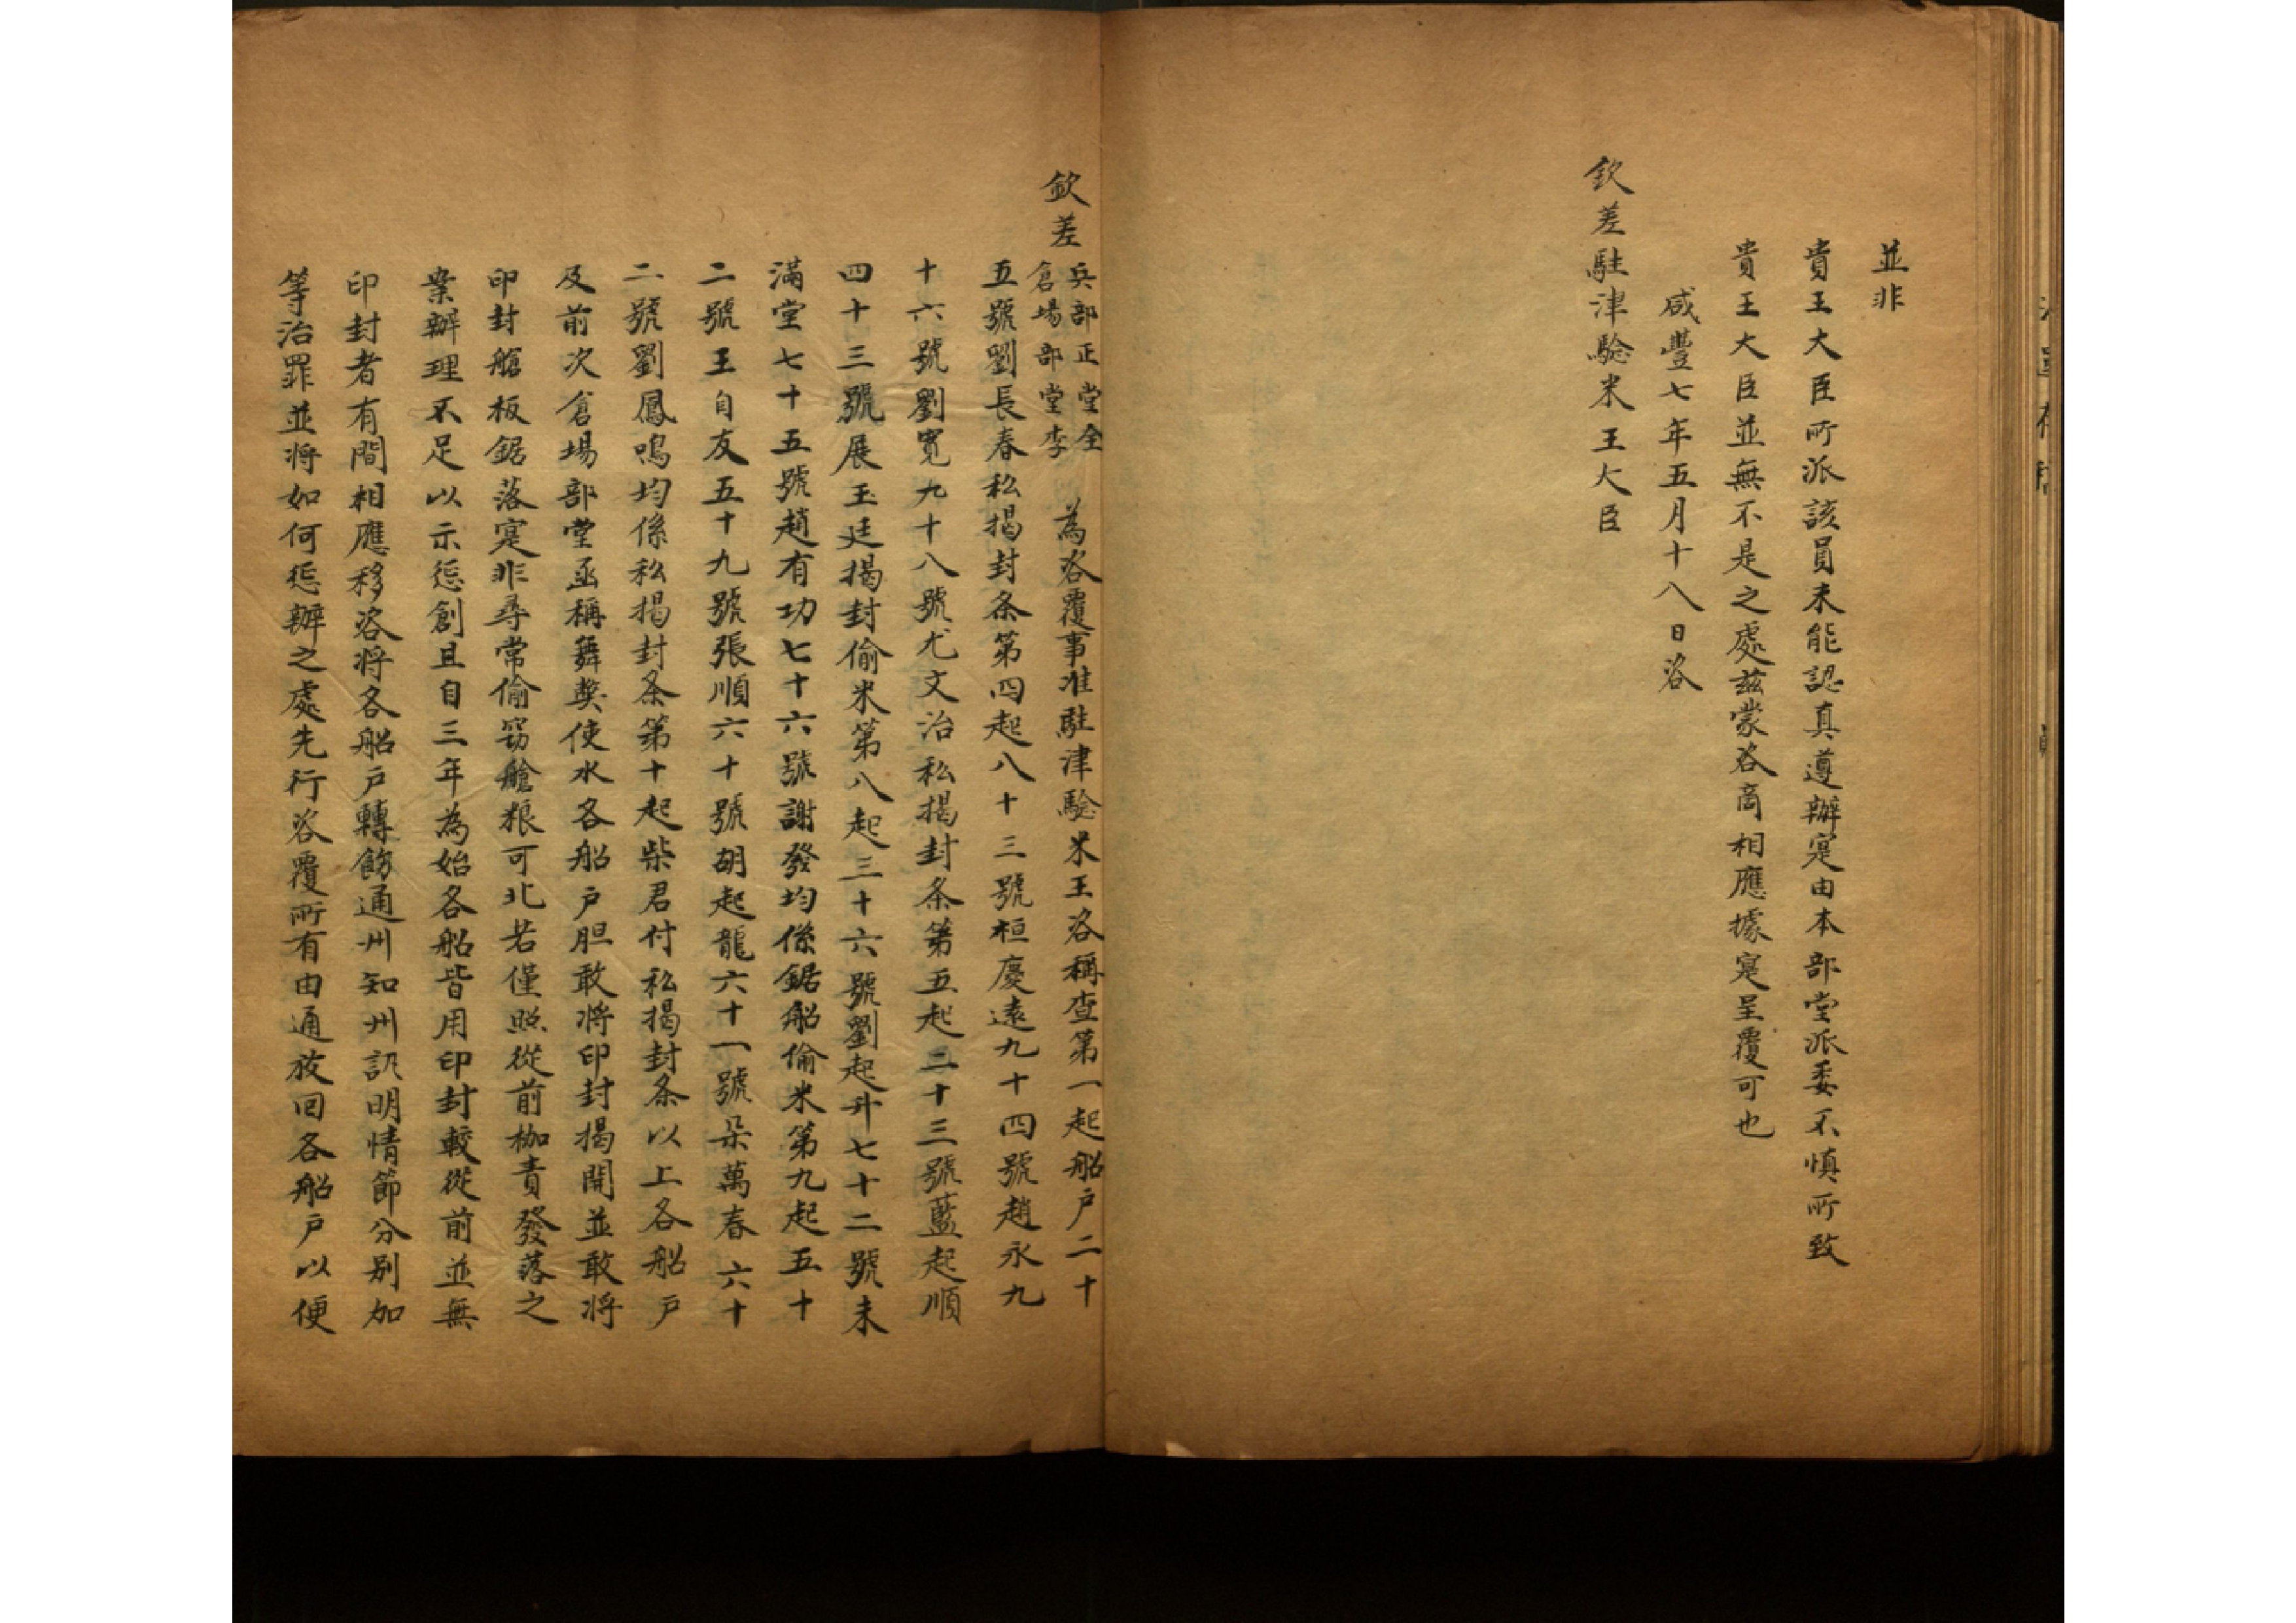 並非
貴王大臣所派該員未能認真遵辦寔由本部堂派委不慎所致
貴王大臣並無不是之處茲蒙咨商相應據寔呈覆可也
咸豐七年五月十八日咨
欽差駐津驗米王大臣
欽差兵部正堂全倉場部堂李為咨覆事准駐津驗米王咨稱查第一起船戶二十
五號劉長春私揭封条第四起八十三號桓慶遠九十四號趙永九
十六號劉寬九十八號尤文治私揭封条第五起二十三號藍起順
四十三號展玉廷揭封偷米第八起三十六號劉起升七十二號未
滿堂七十五號趙有功七十六號謝發均係鋸船偷米第九起五十
二號王自友五十九號張順六十號胡起龍六十一號朵萬春六十
二號劉鳳鳴均係私揭封条第十起柴君付私揭封条以上各船戶
及前次倉場部堂函稱舞獘使水各船戶胆敢將印封揭開並敢將
印封艙板鋸落寔非尋常偷窃艙粮可比若僅照從前枷責發落之
案辦理不足以示懲創且自三年為始各船皆用印封較從前並無
印封者有間相應移咨將各船戶轉飭通州知州訊明情節分別加
等治罪並將如何懲辦之處先行咨覆所有由通放回各船戶以便